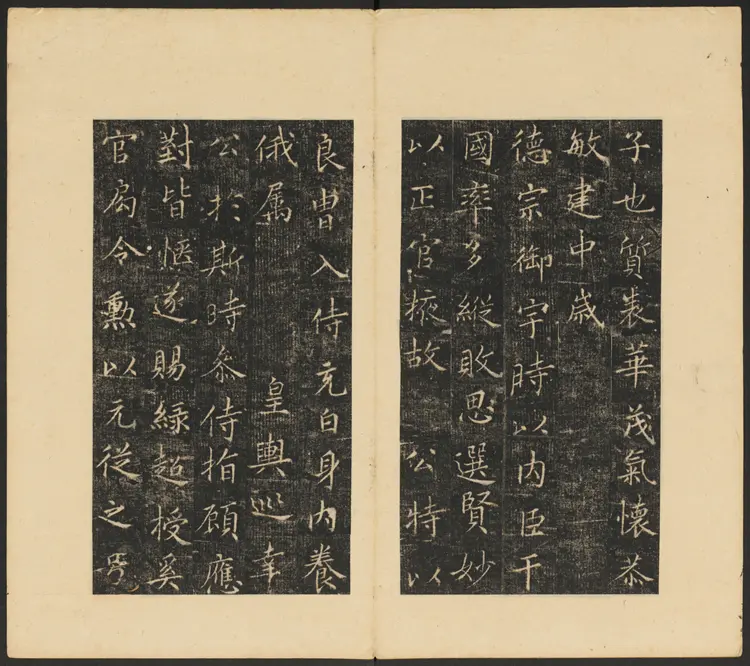 子也質表華茂氣懷恭
敏建中歲
德宗御宇時以內臣干
國率多縱敗思選賢妙
以正官掖故 公特以
良胄入侍充白身內養
俄属 皇輿巡幸
公於斯時參侍指顧應
對皆愜遂賜綠超授奚
官局令勳以元從之号